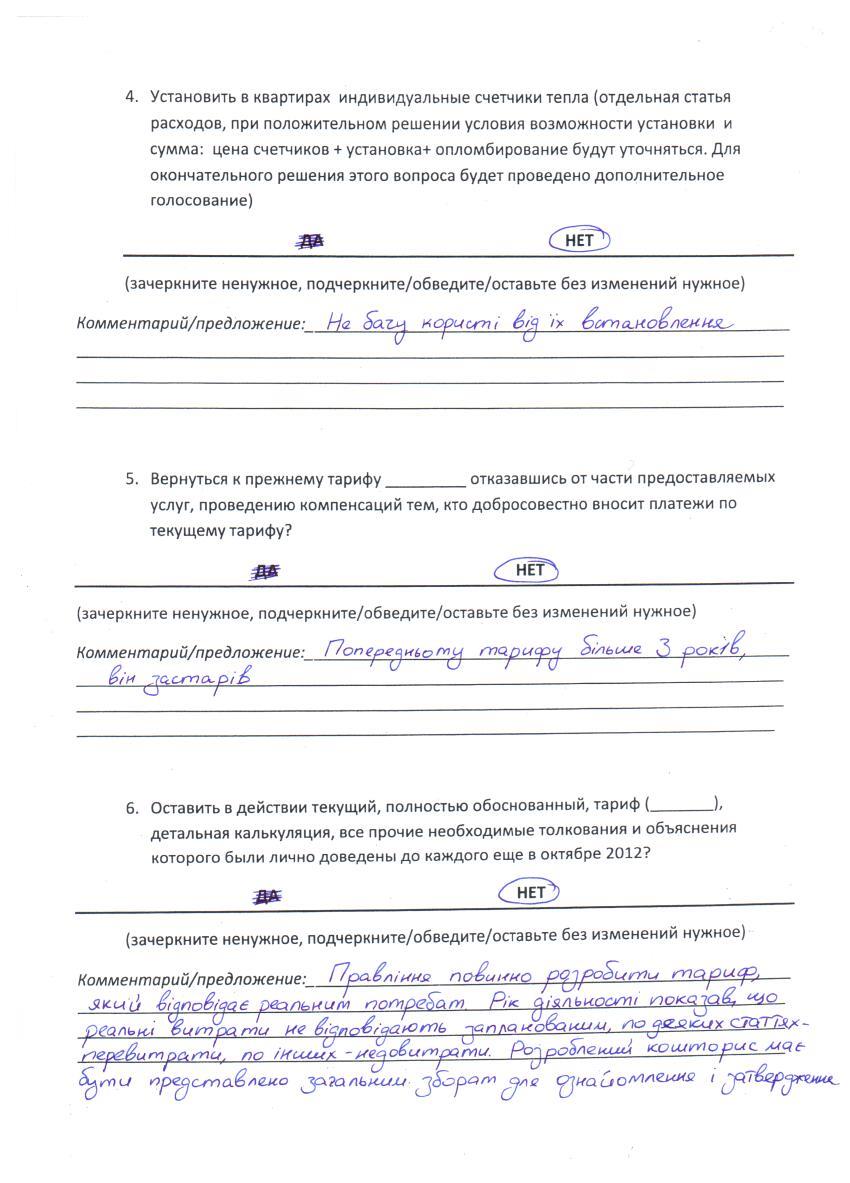 4. Установить в квартирах индивидуальные счетчики тепла (отдельная статья
расходов, при положительном решении условия возможности установки и
сумма: цена счетчиков + установка+ опломбирование будут уточняться. Для
окончательного решения этого вопроса будет проведено дополнительное
голосование)
ДА НЕТ
(зачеркните ненужное, подчеркните/обведите/оставьте без изменений нужное)
Комментарий/предложение: Не бачу користі від їх встановлення
5. Вернуться к прежнему тарифу _________ отказавшись от части предоставляемых
услуг, проведению компенсаций тем, кто добросовестно вносит платежи по
текущему тарифу?
ДА НЕТ
(зачеркните ненужное, подчеркните/обведите/оставьте без изменений нужное)
Комментарий/предложение: Попередньому тарифу більше 3 років,
він застарів
6. Оставить в действии текущий, полностью обоснованный, тариф (_______),
детальная калькуляция, все прочие необходимые толкования и объяснения
которого были лично доведены до каждого еще в октябре 2012?
ДА НЕТ
(зачеркните ненужное, подчеркните/обведите/оставьте без изменений нужное)
Комментарий/предложение: Правління повинно розробити тариф,
який відповідає реальним потребам. Рік діяльності показав, що
реальні витрати не відповідають запланованим, по деяких статтях-
перевитрати, по інших - недовитрати. Розроблений кошторис має
бути представлено загальним зборам для ознайомлення і затвердження